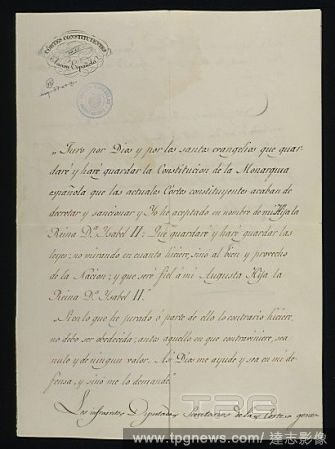 CÓRTES CONSTITUYENTES
DE LA
Nacion Española
„Juro por Dios y por los santos evangelios que guar-
daré y haré guardar la Constitucion de la Monarquia
española que las actuales Cortes constituyentes acaban de
decretar y sancionar y Yo he aceptado en nombre de mi Hija la
Reina D.ª Isabel II: Que guardaré y haré guardar las
leyes: no mirando en cuanto hiciere, sinó al bien y provecho
de la Nacion; y que seré fiel á mi Augusta Hija la
Reina D.ª Isabel II."
Si en lo que he jurado ó parte de ello lo contrario hiciere,
no debo ser obedecida: antes aquello en que contraviniere, sea
nulo y de ningun valor. Asi Dios me ayude y sea en mi de-
fensa, y sino me lo demande."
Los infrascritos Diputados Secretarios de las Cortes gene-
TPG
www.tpgnews.com/ 達志影像